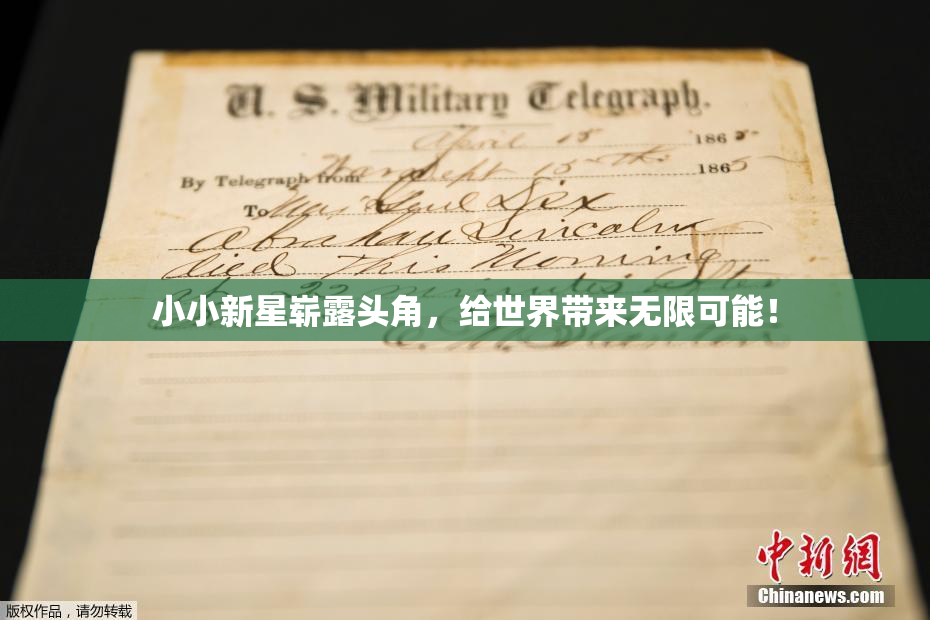 U. S. Military Telegraph.
April 15 1865
By Telegraph from War Dept 15th 1865
To Maj Genl Dix
Abraham Lincoln
died This Morning
at 22 minutes after
小小新星崭露头角，给世界带来无限可能！
E. M. Stanton
中新网
Chinanews.com
版权作品，请勿转载